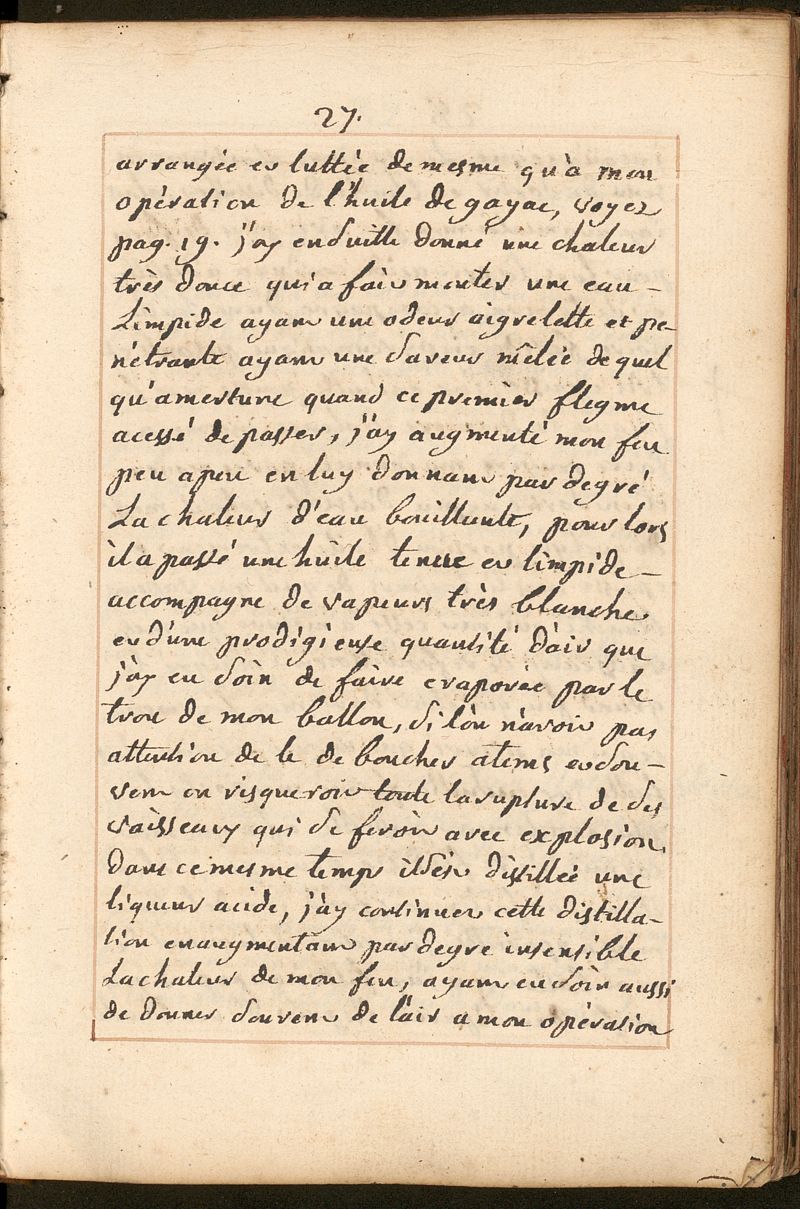 27.
arrangée et luttée de mesme qu'à mon
opèration de l'huile de gayac, voyez
pag. 19. j'ay ensuitte donné une chaleur
très douce qui a fait monter une eau –
Limpide ayant une odeur aigrelette et pe-
nétrante ayant une saveur mêlée de quel
qu'amertume quand ce premier flegme
acessé de passer, j'ay augmenté mon feu
peu apeu en luy donnant par degré
La chaleur d'eau bouillante, pour lors
il a passé une huile tenue et limpide –
accompagne de vapeurs très blanche
et d'une prodigieuse quantité d'air que
j'ay eu soin de faire evaporée par le
trou de mon ballon, si l'on n'avoit pas
attention de le de boucher atems et sou –
vent on risqueroit toute la rupture de ses
vaisseaux qui se feroit avec explosion,
dans ce mesme temps il s'est distillée une
liqueur acide, j'ay continuer cette distilla-
tion en augmentant par degre insensible
La chaleur de mon feu, ayant eu soin aussi
de donner souvent de l'air a mon opèration